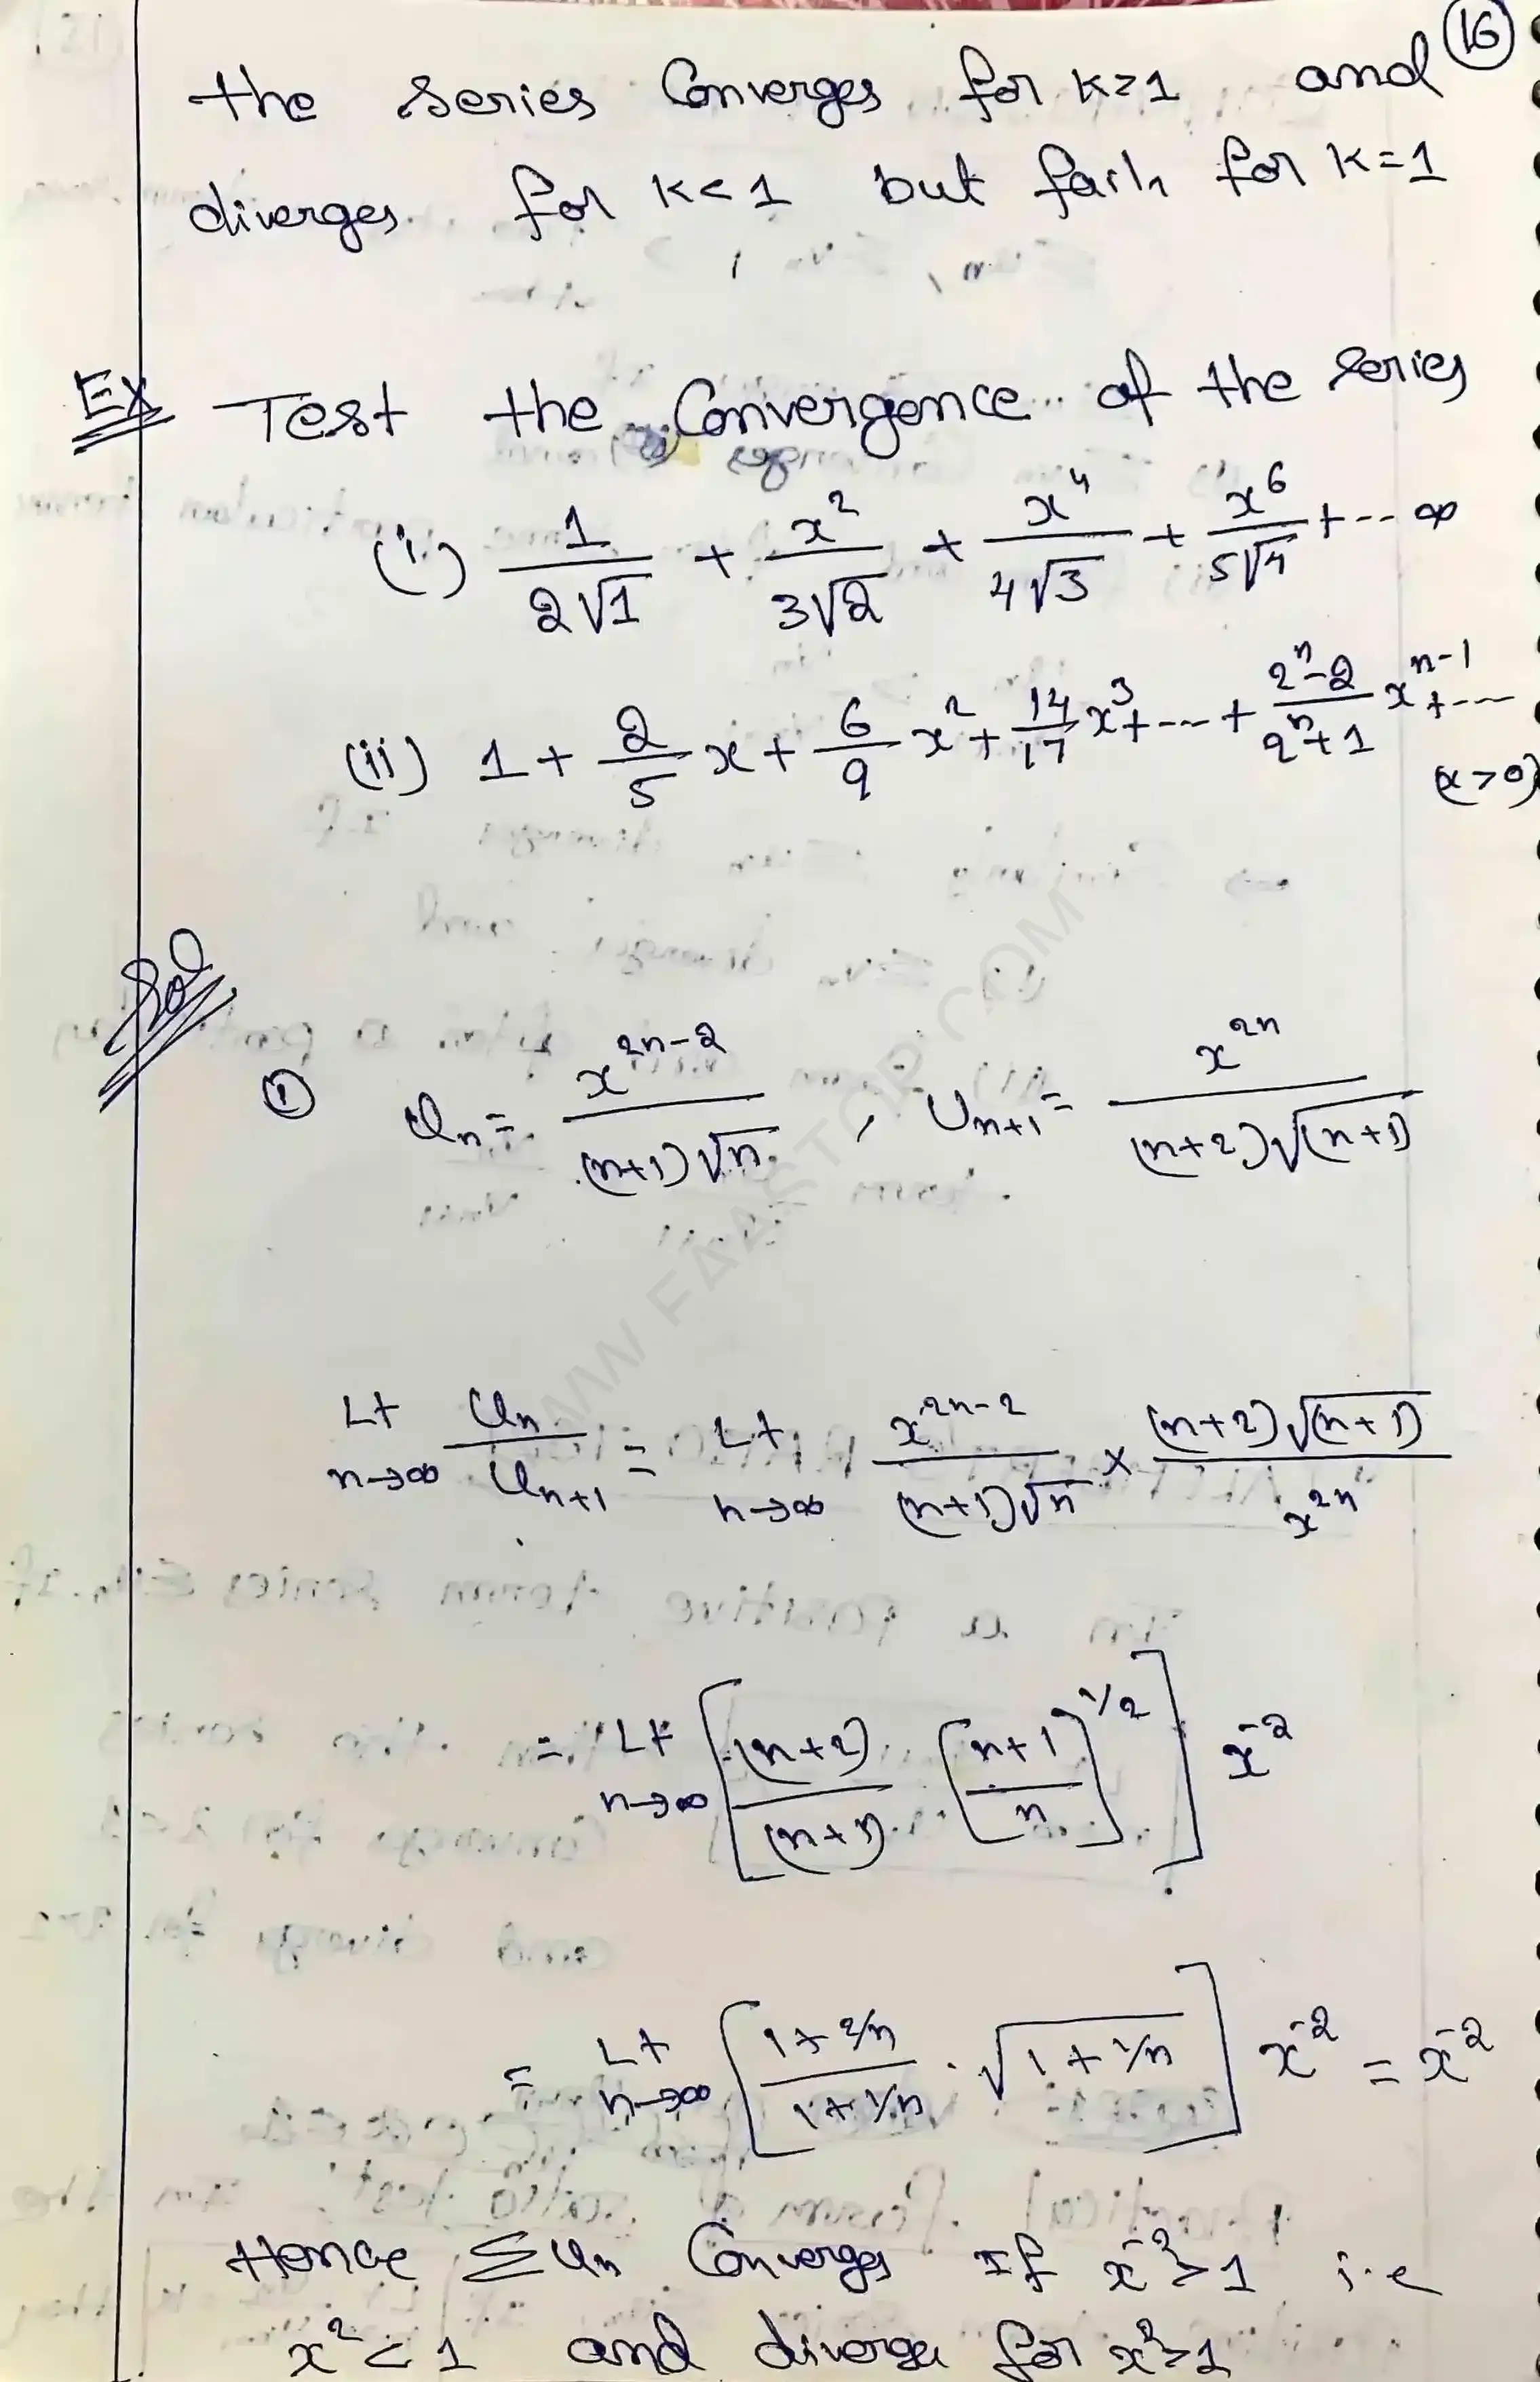 16
the series Converges for K>1 and
diverges for K<1 but fails for K=1
Ex Test the Convergence of the series
(i) 1/(2√1) + x²/(3√2) + x⁴/(4√3) + x⁶/(5√4) + -- ∞
(ii) 1 + 2/5 x + 6/9 x² + 14/17 x³ + --- + (2ⁿ-2)/(2ⁿ+1) xⁿ⁻¹ + ---
(x>0)
Sol
① Uₙ = x²ⁿ⁻²/((n+1)√n) , Uₙ₊₁ = x²ⁿ/((n+2)√(n+1))
Lt n→∞ Uₙ/Uₙ₊₁ = Lt n→∞ x²ⁿ⁻²/((n+1)√n) × (n+2)√(n+1)/x²ⁿ
= Lt n→∞ [(n+2)/(n+1) [(n+1)/n]^1/2] x⁻²
= Lt n→∞ [(1+2/n)/(1+1/n) · √(1+1/n)] x⁻² = x⁻²
Hence ΣUₙ Converges If x⁻²>1 i.e
x²<1 and diverge for x²>1
WWW.FAASTOP.COM